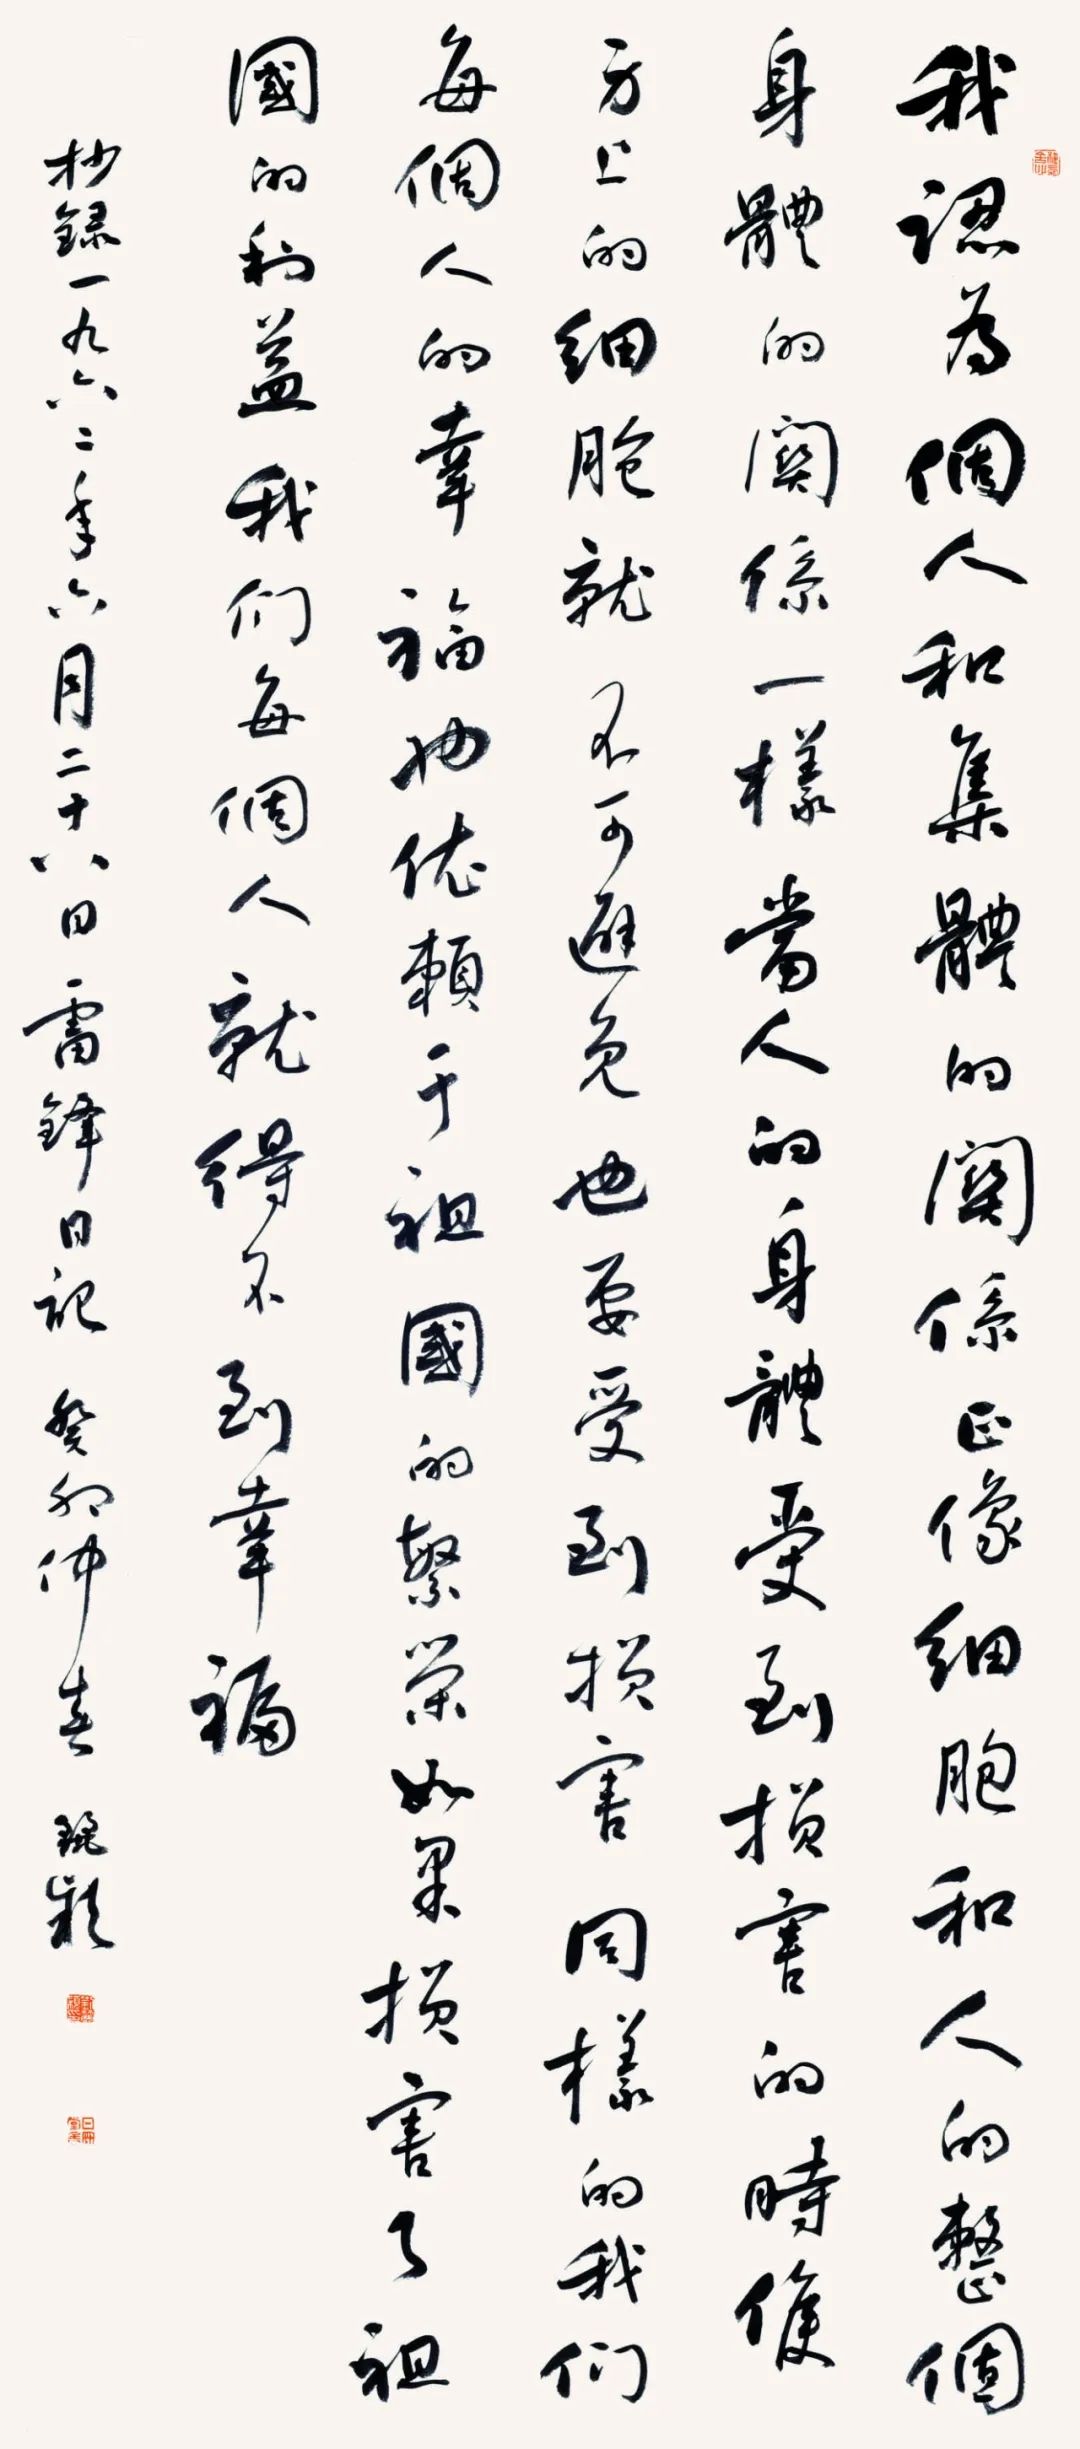 我認為個人和集體的関係正像细胞和人的整個
身體的関係一樣當人的身體受到损害的時候
身上的细胞就不可避免也要受到损害同樣的我们
每個人的幸福也依賴于祖國的繁榮如果损害了祖
國的利益我们每個人就得不到幸福
抄録一九六二年六月二十八日雷鋒日記 癸卯仲春